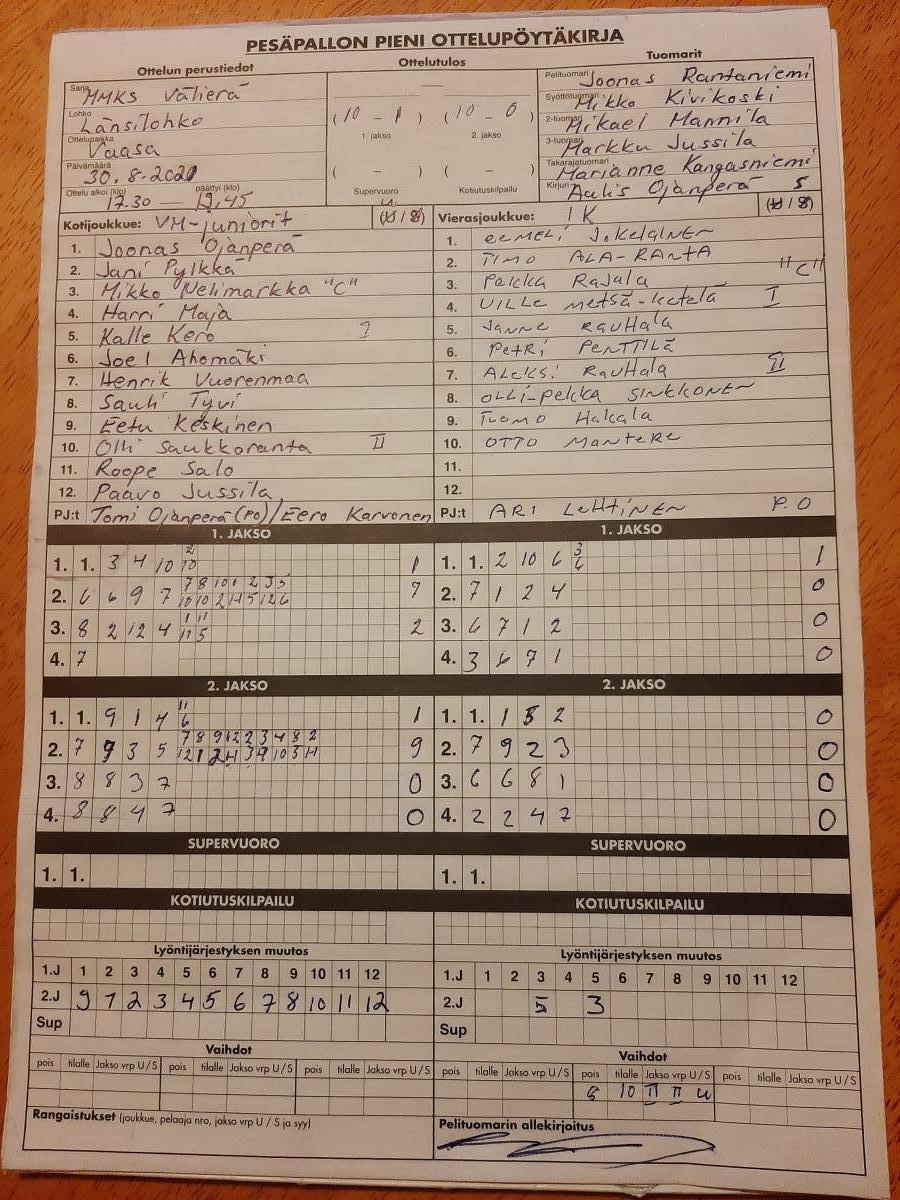 PESÄPALLON PIENI OTTELUPÖYTÄKIRJA
Ottelun perustiedot Ottelutulos Tuomarit
Sarja MMKS Välierä
Lohko Länsilohko
Ottelupaikka Vaasa
Päivämäärä 30.8-2020
Ottelu alkoi (klo) päättyi (klo)
17.30 — 19.45
(10 - 1) (10 - 0)
1. jakso 2. jakso
( - ) ( - )
Supervuoro Kotiutuskilpailu
Pelituomari Joonas Rantaniemi
Syöttötuomari Mikko Kivikoski
2-tuomari Mikael Mannila
3-tuomari Markku Jussila
Takarajatuomari Marianne Kangasniemi
Kirjuri Aulis Ojanperä
Kotijoukkue: VM-juniorit (U/S)
1. Joonas Ojanperä
2. Jani Pylkkä
3. Mikko Nelimarkka "C"
4. Harri Maja
5. Kalle Kero I
6. Joel Ahomäki
7. Henrik Vuorenmaa
8. Sauli Tyvi
9. Eetu Keskinen
10. Olli Saukkoranta II
11. Roope Salo
12. Paavo Jussila
PJ:t Tomi Ojanperä (PO)/Eero Karvonen
Vierasjoukkue: IK S (U/S)
1. EEMELI JOKELAINEN
2. TIMO ALA-RANTA
3. PEKKA RAJALA "C"
4. VILLE METSÄ-KETELÄ I
5. JANNE RAUHALA
6. PETRI PENTTILÄ
7. ALEKSI RAUHALA II
8. OLLI-PEKKA SINKKONEN
9. TUOMO HAKALA
10. OTTO MANTERE
11.
12.
PJ:t ARI LEHTINEN P.O
1. JAKSO
1. 1. 3 4 10 2 10 1
2. 6 6 9 7 7 8 10 1 2 3 5 7
10 10 2 11 5 12 6
3. 8 2 12 4 1 11 2
11 5
4. 7
1. JAKSO
1. 1. 2 10 6 3 6 1
2. 7 1 2 4 0
3. 6 7 1 2 0
4. 3 6 7 1 0
2. JAKSO
1. 1. 9 1 4 11 6 1
2. 7 9 3 5 7 8 9 12 2 3 4 8 2 9
3. 8 8 3 7 0
4. 8 8 4 7 0
2. JAKSO
1. 1. 1 5 2 0
2. 7 9 2 3 0
3. 6 6 8 1 0
4. 2 2 4 7 0
SUPERVUORO SUPERVUORO
1. 1. 1. 1.
KOTIUTUSKILPAILU KOTIUTUSKILPAILU
Lyöntijärjestyksen muutos
1.J 1 2 3 4 5 6 7 8 9 10 11 12
2.J 9 1 2 3 4 5 6 7 8 10 11 12
Sup
Vaihdot
pois tilalle Jakso vrp U/S pois tilalle Jakso vrp U/S pois tilalle Jakso vrp U/S
Rangaistukset (joukkue, pelaaja nro, jakso vrp U / S ja syy)
Lyöntijärjestyksen muutos
1.J 1 2 3 4 5 6 7 8 9 10 11 12
2.J 5 3
Sup
Vaihdot
pois tilalle Jakso vrp U/S pois tilalle Jakso vrp U/S pois tilalle Jakso vrp U/S
8 10 II II U
Pelituomarin allekirjoitus